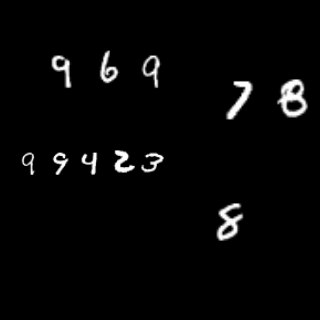 969
78
99423
8